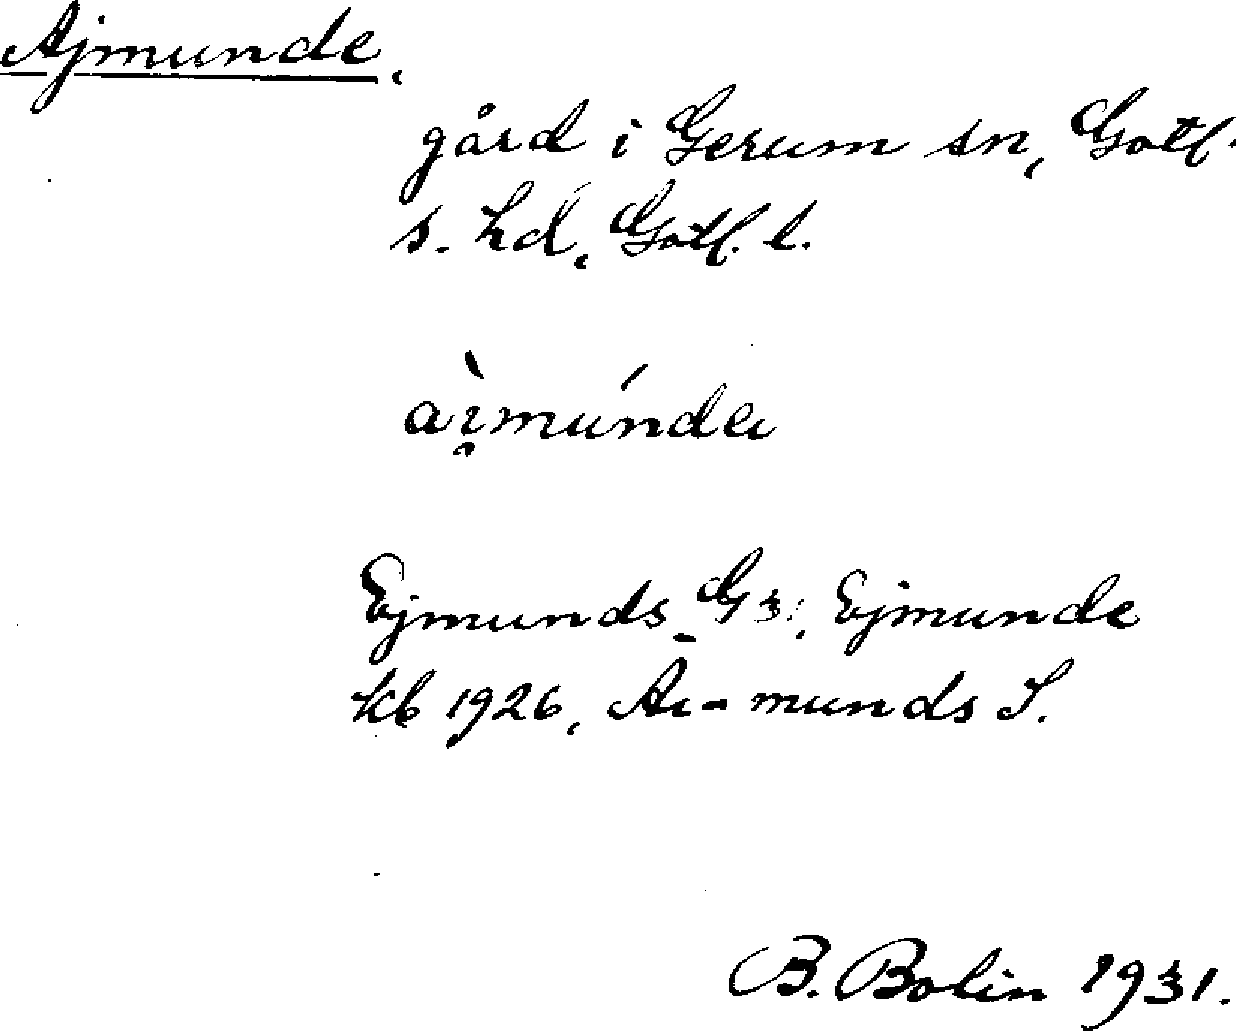 Ajmunde,
gård i Gerum sn, Gotl.
s. hd, Gotl. l.
ài̯múnde
Ejmunds G 3, Ejmunde
kb 1926, Ai-munds S.
B. Bolin 1931.